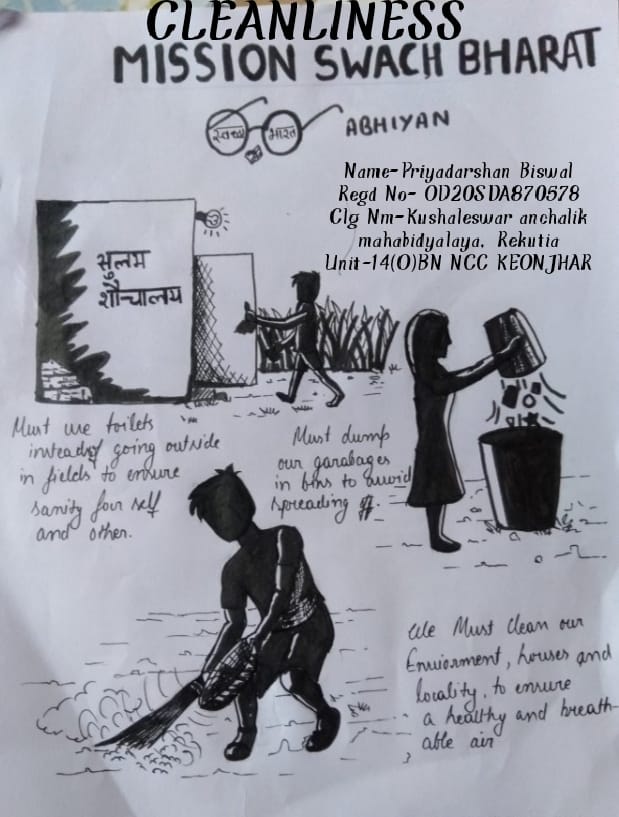 CLEANLINESS
MISSION SWACH BHARAT
स्वच्छ भारत
ABHIYAN
Name-Priyadarshan Biswal
Regd No- OD20SDA870578
Clg Nm-Kushaleswar anchalik
mahabidyalaya, Rekutia
Unit-14(O)BN NCC KEONJHAR
सुलभ
शौचालय
Must use toilets
instead of going outside
in fields to ensure
sanity four self
and other.
Must dump
our garabages
in bins to auvoid
spreading of.
We Must clean our
Enviorment, houses and
locality, to ensure
a healthy and breath-
able air